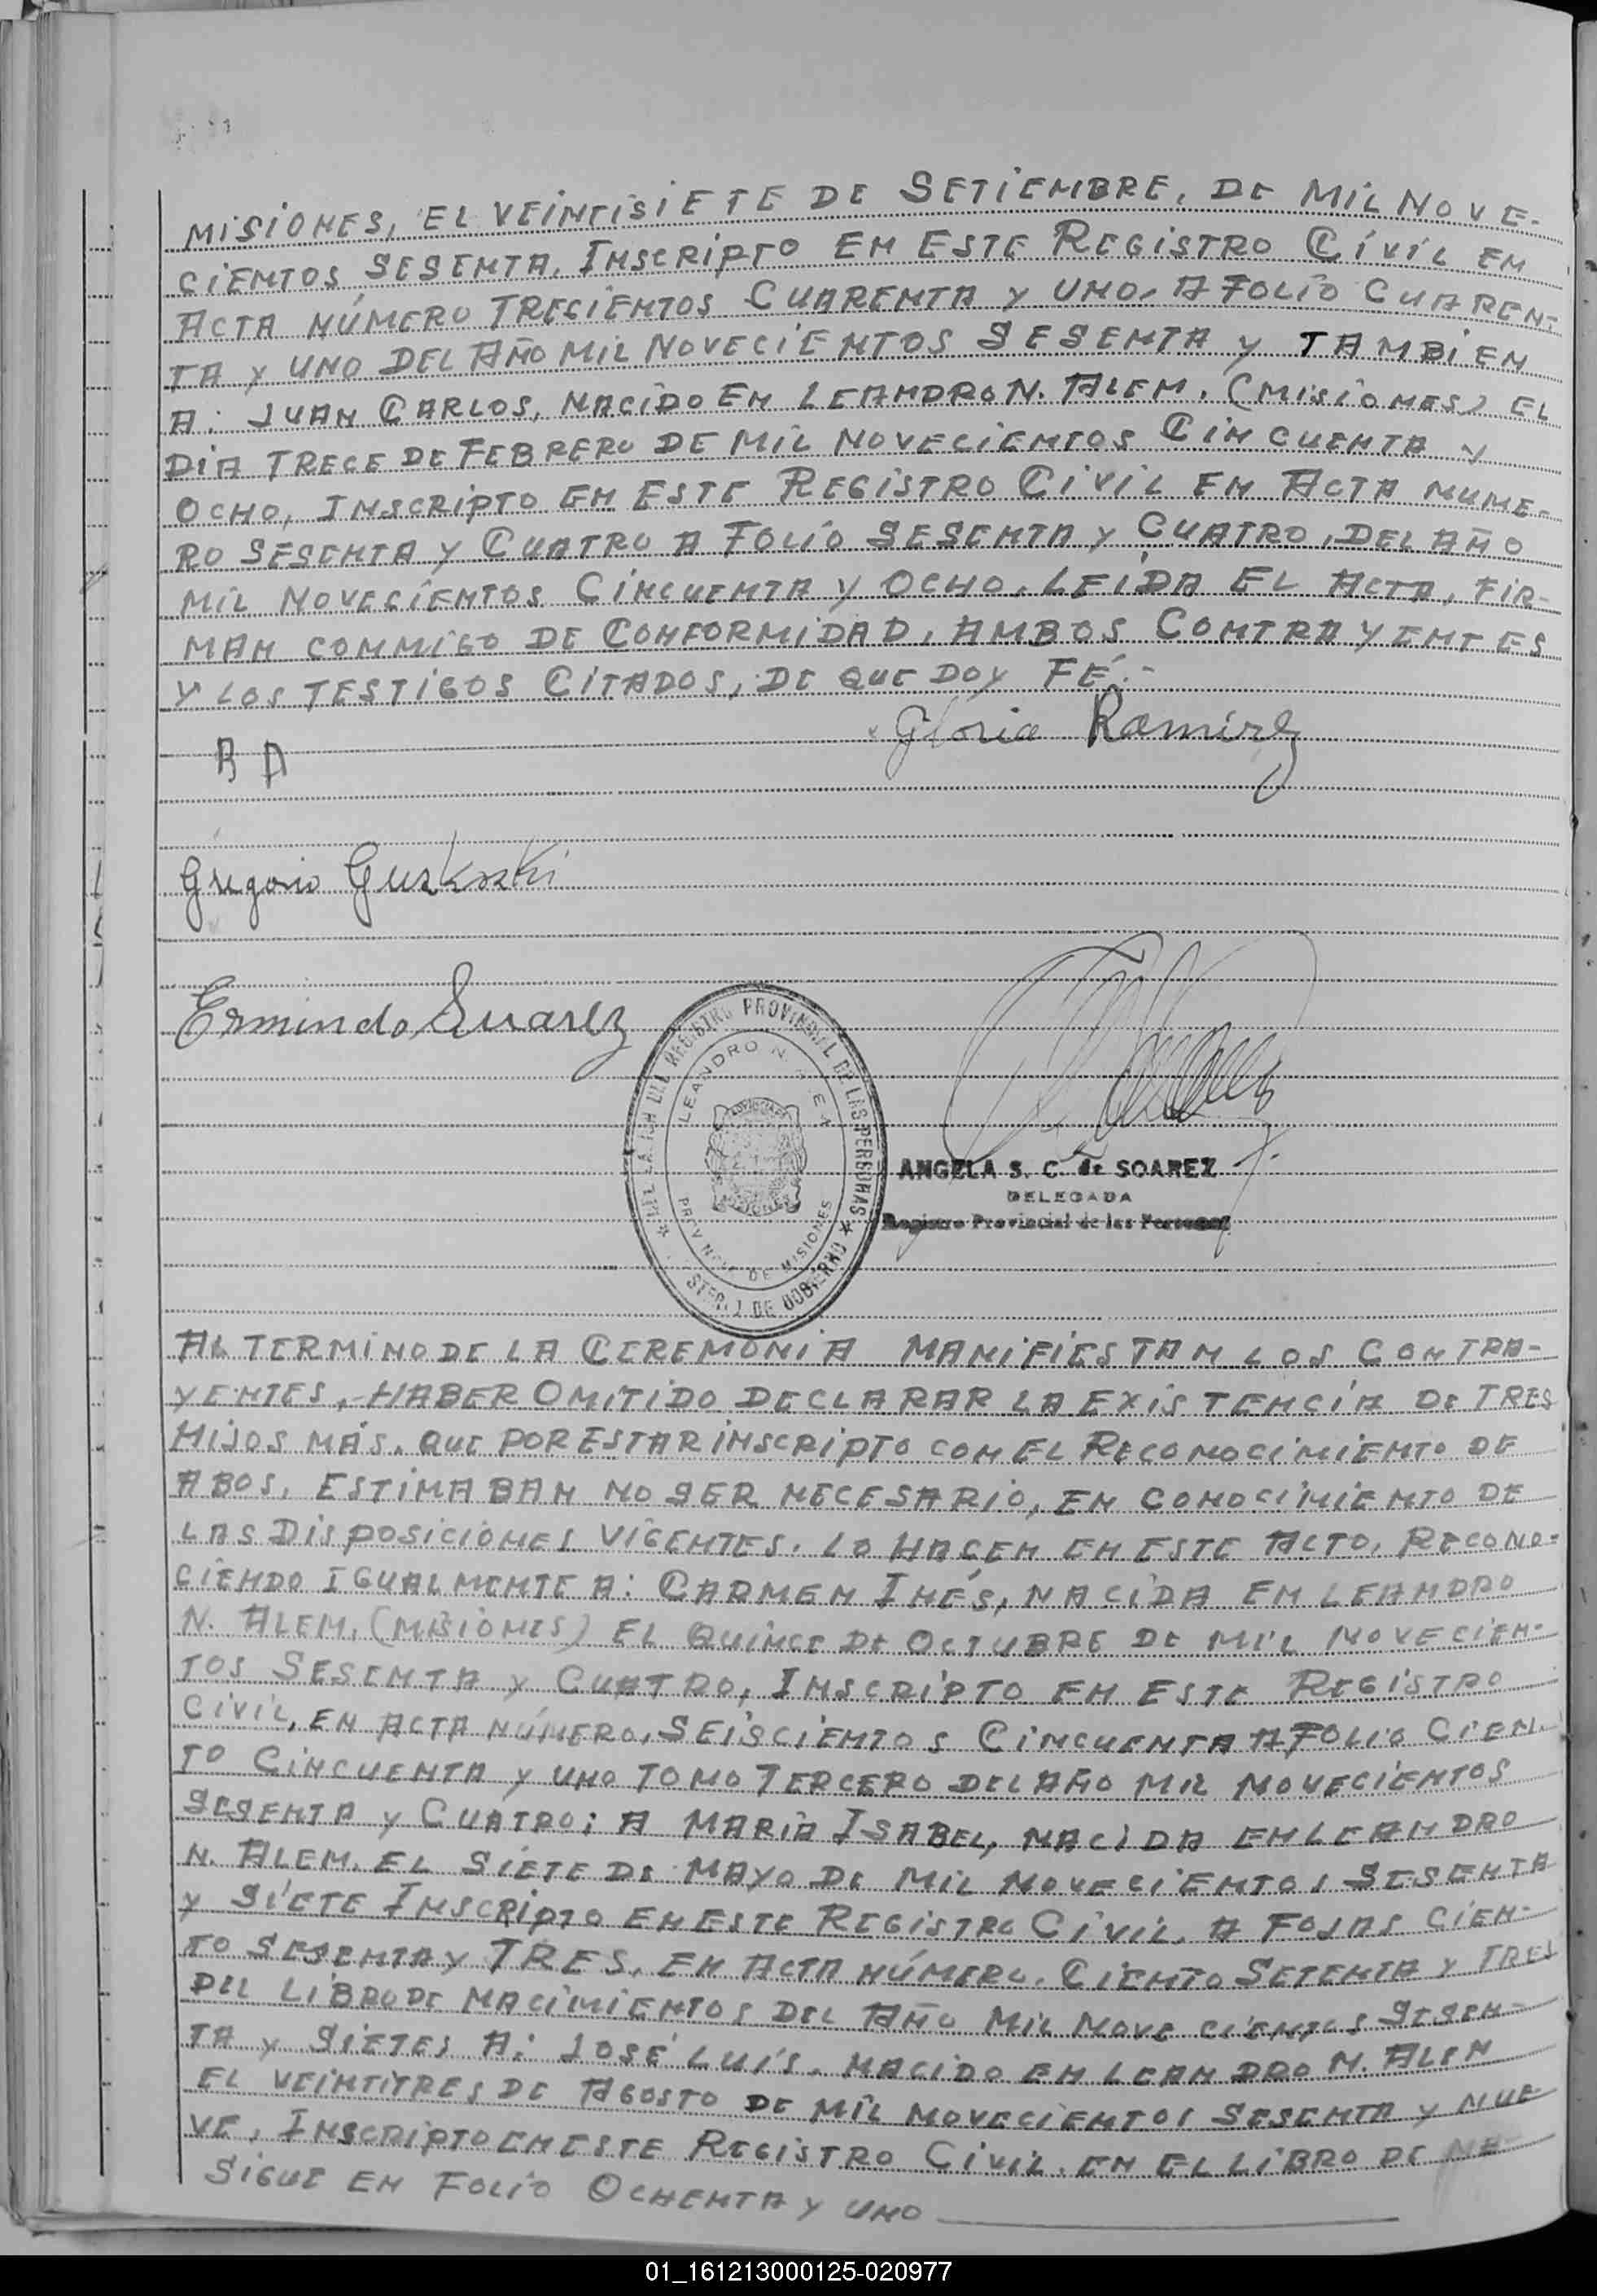 MISIONES, EL VEINTISIETE DE SETIEMBRE, DE MIL NOVE-
CIENTOS, SESENTA, INSCRIPTO EN ESTE REGISTRO CIVIL EN
ACTA NÚMERO TRECIENTOS CUARENTA Y UNO, A FOLIO CUAREN-
TA Y UNO DEL AÑO MIL NOVECIENTOS SESENTA Y TAMBIEN
A: JUAN CARLOS, NACIDO EN LEANDRO N. ALEM, (MISIONES) EL
DIA TRECE DE FEBRERO DE MIL NOVECIENTOS CINCUENTA Y
OCHO, INSCRIPTO EN ESTE REGISTRO CIVIL EN ACTA NUME-
RO SESENTA Y CUATRO A FOLIO SESENTA Y CUATRO, DEL AÑO
MIL NOVECIENTOS CINCUENTA Y OCHO, LEIDA EL ACTA, FIR-
MAN CONMIGO DE CONFORMIDAD, AMBOS CONTRAYENTES
Y LOS TESTIGOS CITADOS, DE QUE DOY FÉ.-
Gloria Ramirez
R A
Gregorio
Ermindo Suarez
REGISTRO PROVINCIAL DE LAS PERSONAS
LEANDRO N. ALEM
PROVINCIA DE MISIONES
DE GOBIERNO
ANGELA S. C. de SOAREZ
DELEGADA
Registro Provincial de las Personas
AL TERMINO DE LA CEREMONIA MANIFIESTAN LOS CONTRA-
YENTES, HABER OMITIDO DECLARAR LA EXISTENCIA DE TRES
HIJOS MÁS, QUE POR ESTAR INSCRIPTO CON EL RECONOCIMIENTO DE
ABOS, ESTIMABAN NO SER NECESARIO, EN CONOCIMIENTO DE
LAS DISPOSICIONES VIGENTES, LO HACEN EN ESTE ACTO, RECONO-
CIENDO IGUALMENTE A: CARMEN INÉS, NACIDA EN LEANDRO
N. ALEM, (MISIONES) EL QUINCE DE OCTUBRE DE MIL NOVECIEN-
TOS SESENTA Y CUATRO, INSCRIPTO EN ESTE REGISTRO
CIVIL, EN ACTA NÚMERO, SEISCIENTOS CINCUENTA A FOLIO CIEN-
TO CINCUENTA Y UNO TOMO TERCERO DEL AÑO MIL NOVECIENTOS
SESENTA Y CUATRO; A MARIA ISABEL, NACIDA EN LEANDRO
N. ALEM, EL SIETE DE MAYO DE MIL NOVECIENTOS SESENTA
Y SIETE INSCRIPTO EN ESTE REGISTRO CIVIL, A FOJAS CIEN-
TO SESENTA Y TRES, EN ACTA NÚMERO, CIENTO SETENTA Y TRES
DEL LIBRO DE NACIMIENTOS DEL AÑO MIL NOVECIENTOS SESEN-
TA Y SIETE; A: JOSÉ LUÍS, NACIDO EN LEANDRO N. ALEM
EL VEINTITRES DE AGOSTO DE MIL NOVECIENTOS SESENTA Y NUE-
VE, INSCRIPTO EN ESTE REGISTRO CIVIL, EN EL LIBRO DE NA-
SIGUE EN FOLIO OCHENTA Y UNO
01_161213000125-020977